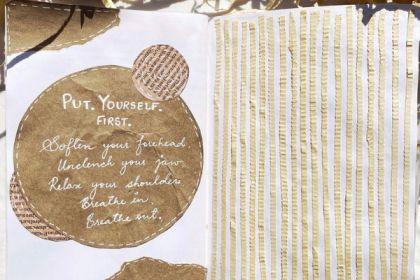 PUT. YOURSELF.
FIRST.
Soften your forehead
Unclench your jaw
Relax your shoulders
Breathe in.
Breathe out.